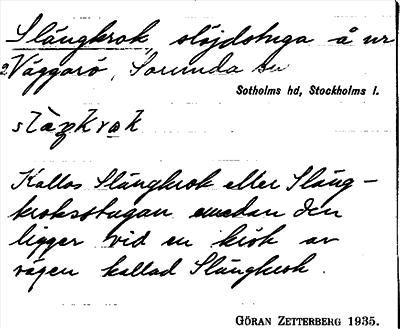 Slängkrok, slöjdstuga å nr
2 Väggarö, Sorunda sn
Sotholms hd, Stockholms l.
slàŋkrok
Kallas Slängkrok eller Släng-
kroksstugan emedan den
ligger vid en krök av
vägen kallad Slängkrok.
GÖRAN ZETTERBERG 1935.